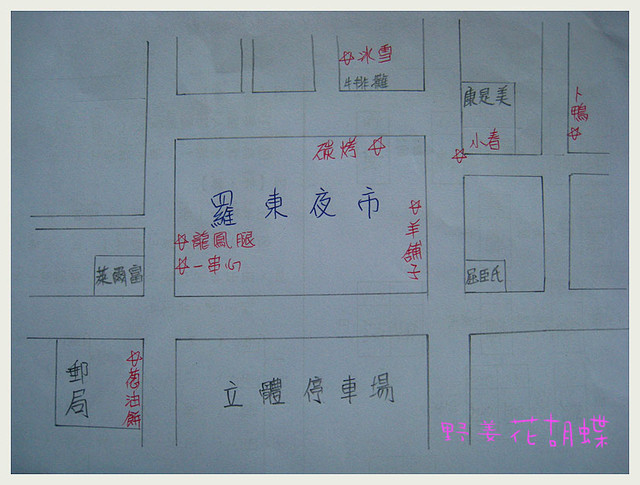 冰雪
牛排攤
康是美
卜鴨
小春
碳烤
羅東夜市
羊舖子
龍鳳腿
一串心
萊爾富
屈臣氏
郵局
蔥油餅
立體停車場
野姜花胡蝶